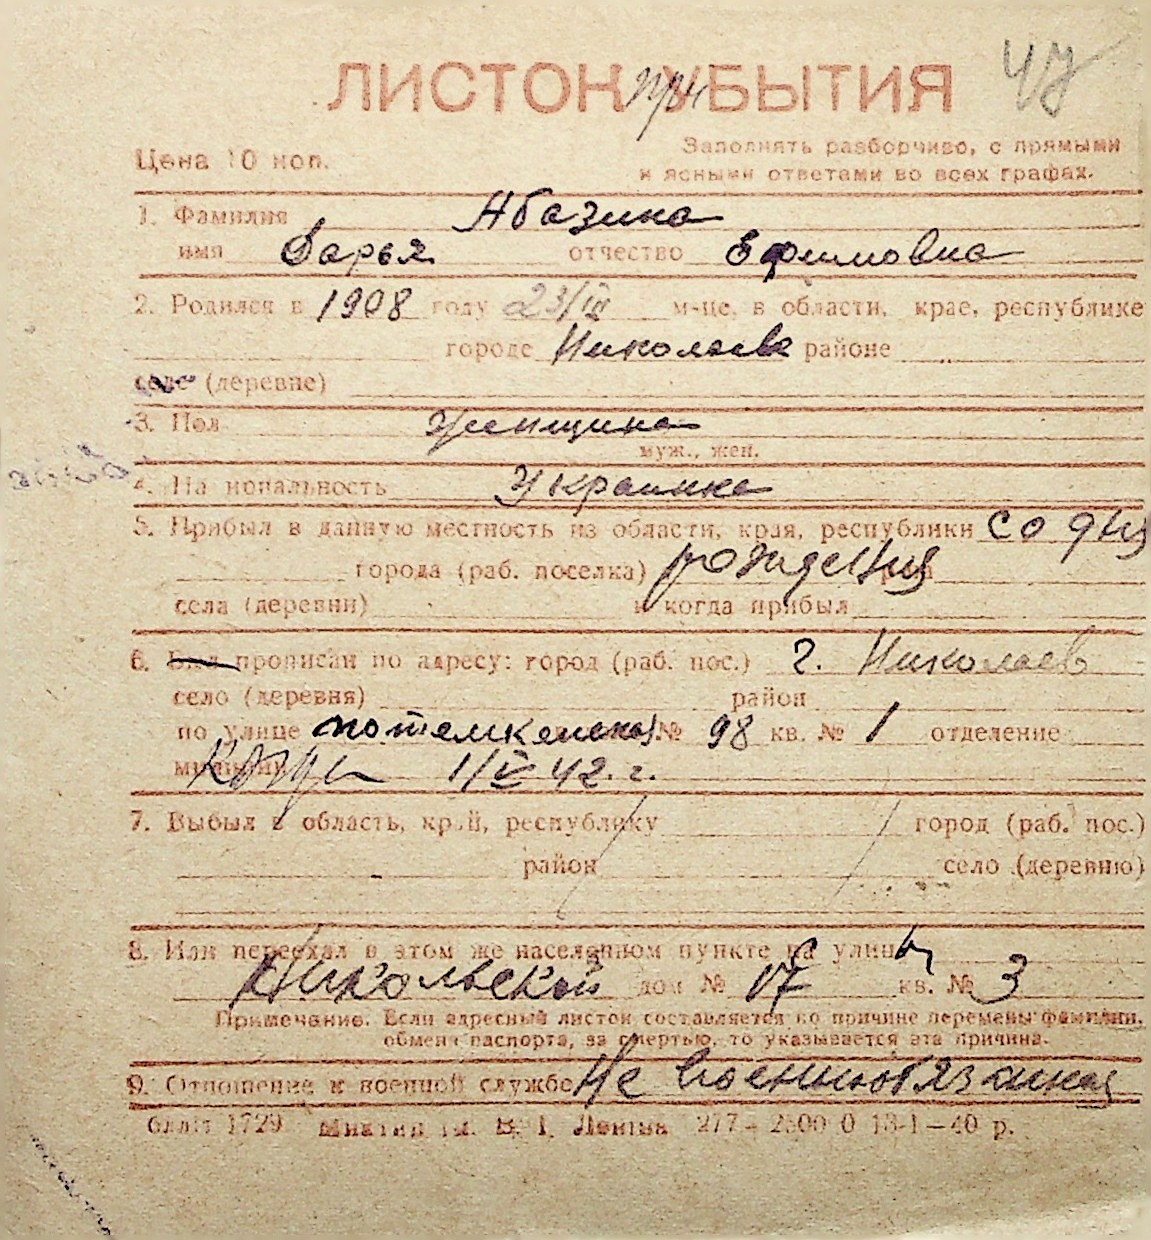 ЛИСТОК при УБЫТИЯ
Цена 10 коп.
Заполнять разборчиво, с прямыми
и ясными ответами во всех графах.
1. Фамилия Абазина
имя Дарья отчество Ефимовна
2. Родился в 1908 году 23/III м-це, в области, крае, республике
городе Николаев районе
селе (деревне)
3. Пол женщина
муж., жен.
4. На иональность Украинка
5. Прибыл в данную местность из области, края, республики со дня
города (раб. поселка) рождения
села (деревни) и когда прибыл
6. Был прописан по адресу: город (раб. пос.) г. Николаев
село (деревня) район
по улице потемкенская № 98 кв. № 1 отделение
милиции 1/V 42. г.
7. Выбыл в область, край, республику город (раб. пос.)
район село (деревню)
8. Или переехал в этом же населенном пункте на улицу
Никольской дом № 17 кв. № 3
Примечание. Если адресный листок составляется по причине перемены фамилии,
обмена паспорта, за смертью, то указывается эта причина.
9. Отношение к военной службе Не военнообязанная
1729 В. І. Леніна 277 — 2500 0 13-1—40 р.